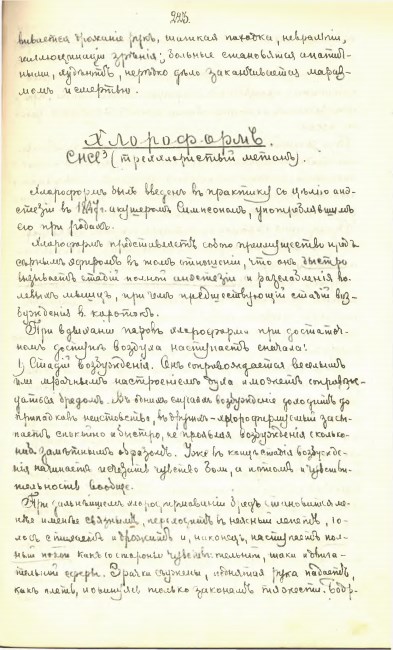 223.
вивается дрожаніе рукъ, шаткая походка, невралгіи,
галлюцинаціи зрѣнія; больные становятся апатич-
ными, худѣютъ, нерѣдко дѣло заканчивается мараз-
момъ и смертью.
Хлороформъ.
CHCl³ (трёххлористый метанъ).
Хлороформъ былъ введенъ въ практику съ цѣлію анэ-
стезіи въ 1847 г. акушеромъ Симпсономъ, употреблявшимъ
его при родахъ.
Хлороформъ представляетъ собою преимущество предъ
сѣрнымъ эфиромъ въ томъ отношеніи, что онъ быстро
вызываетъ стадій полной анестезіи и разслабленія во-
левыхъ мышцъ, при чемъ предшествующій стадій воз-
бужденія в. коротокъ.
При вдыханіи паровъ хлороформа при достаточ-
номъ доступѣ воздуха наступаетъ сначала:
1) Стадій возбужденія. Онъ сопровождается веселымъ
или мрачнымъ настроеніемъ духа и можетъ сопровож-
даться бредомъ. Въ однихъ случаяхъ возбужденіе доходитъ до
припадковъ неистовства, въ другихъ – хлороформируемый засы-
паетъ спокойно и быстро, не проявляя возбужденія сколько-
нибудь замѣтнымъ образомъ. Уже въ концѣ стадія возбужде-
нія начинаетъ исчезать чувство боли, а потомъ и чувстви-
тельность вообще.
При дальнѣйшемъ хлороформированіи бредъ становится ме-
нѣе и менѣе связнымъ, переходитъ въ неясный лепетъ, го-
лосъ стихаетъ и, наконецъ, наступаетъ пол-
ный покой какъ со стороны чувствительной, такъ и двига-
тельной сферы. Зрачки съужены, поднятая рука падаетъ,
какъ плеть, повинуясь только законамъ тяжести.